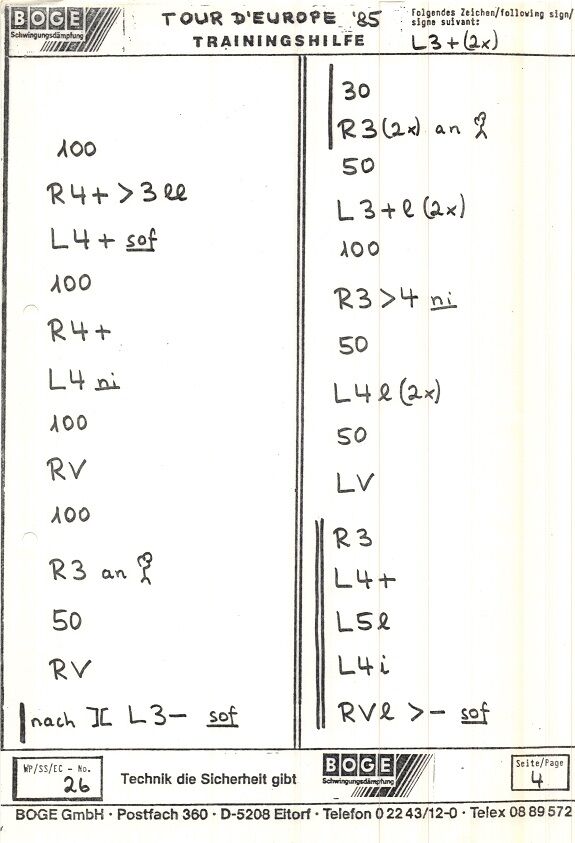 BOGE
Schwingungsdämpfung
TOUR D'EUROPE '85
TRAININGSHILFE
Folgendes Zeichen/following sign/
signe suivant:
L3+(2x)
100
R4+ >3 ll
L4+ sof
100
R4+
L4 ni
100
RV
100
R3 an
50
RV
nach ][ L3- sof
30
R3(2x) an
50
L3+l(2x)
100
R3>4 ni
50
L4l(2x)
50
LV
R3
L4+
L5l
L4i
RVl >- sof
WP/SS/EC - No.
26
Technik die Sicherheit gibt
BOGE
Schwingungsdämpfung
Seite/Page
4
BOGE GmbH · Postfach 360 · D-5208 Eitorf · Telefon 0 22 43/12-0 · Telex 08 89 572